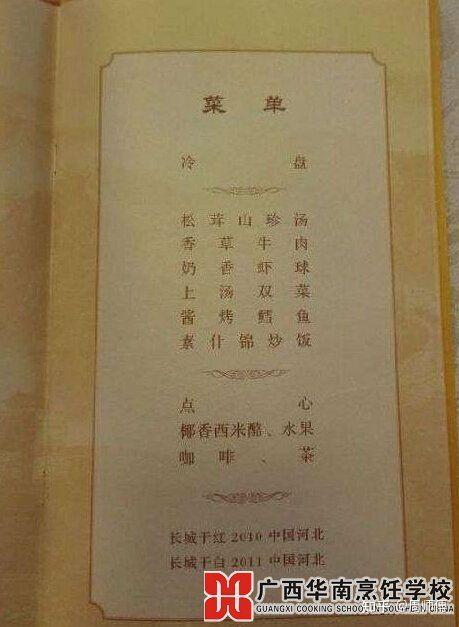 菜单
冷盘
松茸山珍汤
香草牛肉
奶香虾球
上汤双菜
酱烤鳕鱼
素什锦炒饭
点心
椰香西米酪、水果
咖啡、茶
长城干红2010中国河北
长城干白2011中国河北
广西华南烹饪学校
GUANGXI COOKING SCHOOL IN SOUTHERN CHINA
知乎